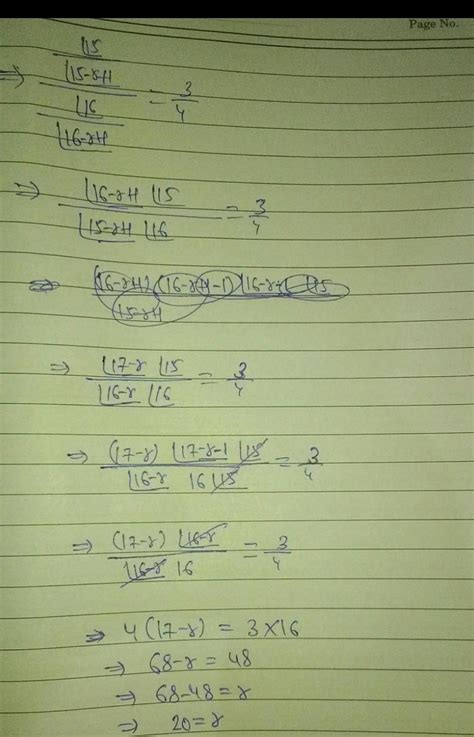 Page No.
⌊15 / ⌊15-r+1 / ⌊16 / ⌊16-r+1 = 3/4
⇒ ⌊16-r+1 ⌊15 / ⌊15-r+1 ⌊16 = 3/4
⇒ ⌊17-r ⌊15 / ⌊16-r ⌊16 = 3/4
⇒ (17-r) ⌊17-r-1 ⌊15 / ⌊16-r 16 ⌊15 = 3/4
⇒ (17-r) ⌊16-r / ⌊16-r 16 = 3/4
⇒ 4(17-r) = 3×16
⇒ 68-r = 48
⇒ 68-48 = r
⇒ 20 = r